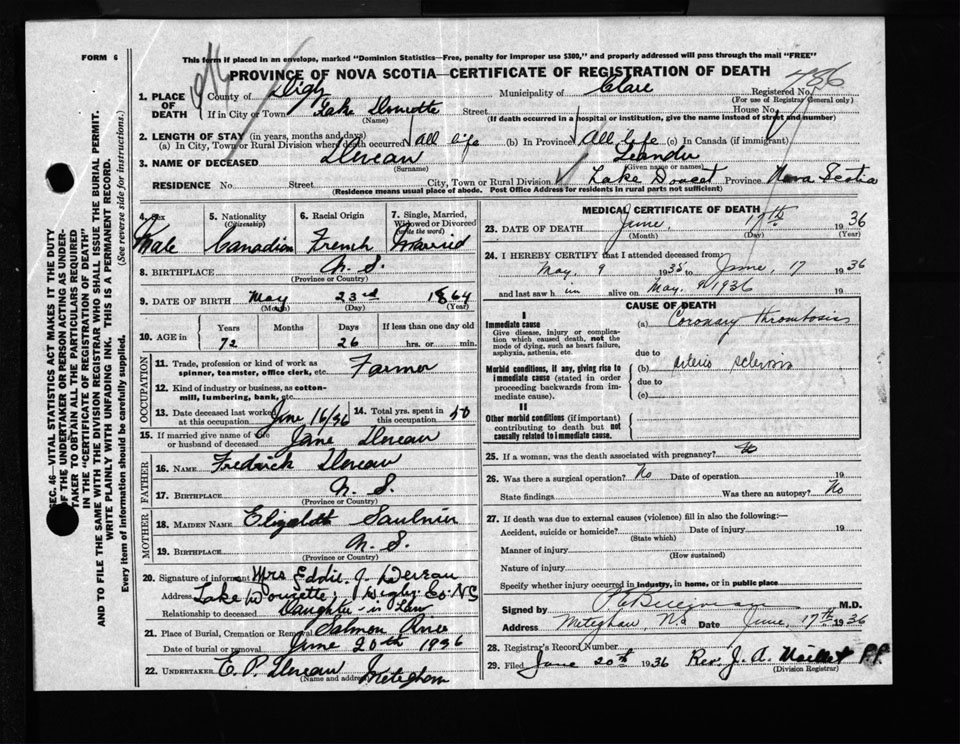 FORM 6
This form if placed in an envelope, marked "Dominion Statistics—Free, penalty for improper use $300," and properly addressed will pass through the mail "FREE"
PROVINCE OF NOVA SCOTIA—CERTIFICATE OF REGISTRATION OF DEATH
486
1. PLACE OF DEATH
County of Digby Municipality of Clare Registered No.
(For use of Registrar General only)
If in City or Town Lake Street House No.
(Name) (If death occurred in a hospital or institution, give the name instead of street and number)
2. LENGTH OF STAY (in years, months and days)
(a) In City, Town or Rural Division where death occurred All life (b) In Province All life (c) In Canada (if immigrant)
3. NAME OF DECEASED Leander
(Surname) (Given name or names)
RESIDENCE No. Street City, Town or Rural Division Lake Doucet Province Nova Scotia
(Residence means usual place of abode. Post Office Address for residents in rural parts not sufficient)
4. Sex Male
5. Nationality (Citizenship) Canadian
6. Racial Origin French
7. Single, Married, Widowed or Divorced (write the word) Married
8. BIRTHPLACE N. S.
(Province or Country)
9. DATE OF BIRTH May 23rd 1864
(Month) (Day) (Year)
10. AGE in Years Months Days If less than one day old
72 26 hrs. or min.
OCCUPATION
11. Trade, profession or kind of work as spinner, teamster, office clerk, etc. Farmer
12. Kind of industry or business, as cotton-mill, lumbering, bank, etc.
13. Date deceased last worked at this occupation June 16/36
14. Total yrs. spent in this occupation 50
15. If married give name of wife or husband of deceased Jane
FATHER
16. NAME Fredrick
17. BIRTHPLACE N. S.
(Province or Country)
MOTHER
18. MAIDEN NAME Elizabeth Saulnier
19. BIRTHPLACE N. S.
(Province or Country)
20. Signature of informant Mrs Eddie. J.
Address Lake Digby Co. N.S
Relationship to deceased Daughter-in Law
21. Place of Burial, Cremation or Removal Salmon River
Date of burial or removal June 20th 1936
22. UNDERTAKER E. P. Meteghan
(Name and address)
MEDICAL CERTIFICATE OF DEATH
23. DATE OF DEATH June, 17th 1936
(Month) (Day) (Year)
24. I HEREBY CERTIFY that I attended deceased from
May, 9 1935 to June, 17 1936
and last saw him alive on May, 9 1936
CAUSE OF DEATH
I
Immediate cause
Give disease, injury or complication which caused death, not the mode of dying, such as heart failure, asphyxia, asthenia, etc.
(a) Coronary thrombosis
due to
Morbid conditions, if any, giving rise to immediate cause (stated in order proceeding backwards from immediate cause).
(b) arterio sclerosis
due to
(c)
II
Other morbid conditions (if important) contributing to death but not causally related to immediate cause.
25. If a woman, was the death associated with pregnancy?
26. Was there a surgical operation? No Date of operation 19
State findings Was there an autopsy? No
27. If death was due to external causes (violence) fill in also the following:—
Accident, suicide or homicide? Date of injury 19
(State which)
Manner of injury
(How sustained)
Nature of injury
Specify whether injury occurred in industry, in home, or in public place
Signed by M.D.
Address Meteghan, N.S Date June, 17th 1936
28. Registrar's Record Number
29. Filed June 20th 1936 Rev. J. A. Maillet P.P.
(Division Registrar)
SEC. 46—VITAL STATISTICS ACT MAKES IT THE DUTY
OF THE UNDERTAKER OR PERSON ACTING AS UNDER-
TAKER TO OBTAIN ALL THE PARTICULARS REQUIRED
IN THE "CERTIFICATE OF REGISTRATION OF DEATH"
AND TO FILE THE SAME WITH THE DIVISION REGISTRAR WHO SHALL ISSUE THE BURIAL PERMIT.
WRITE PLAINLY WITH UNFADING INK. THIS IS A PERMANENT RECORD.
Every item of information should be carefully supplied. (See reverse side for instructions.)